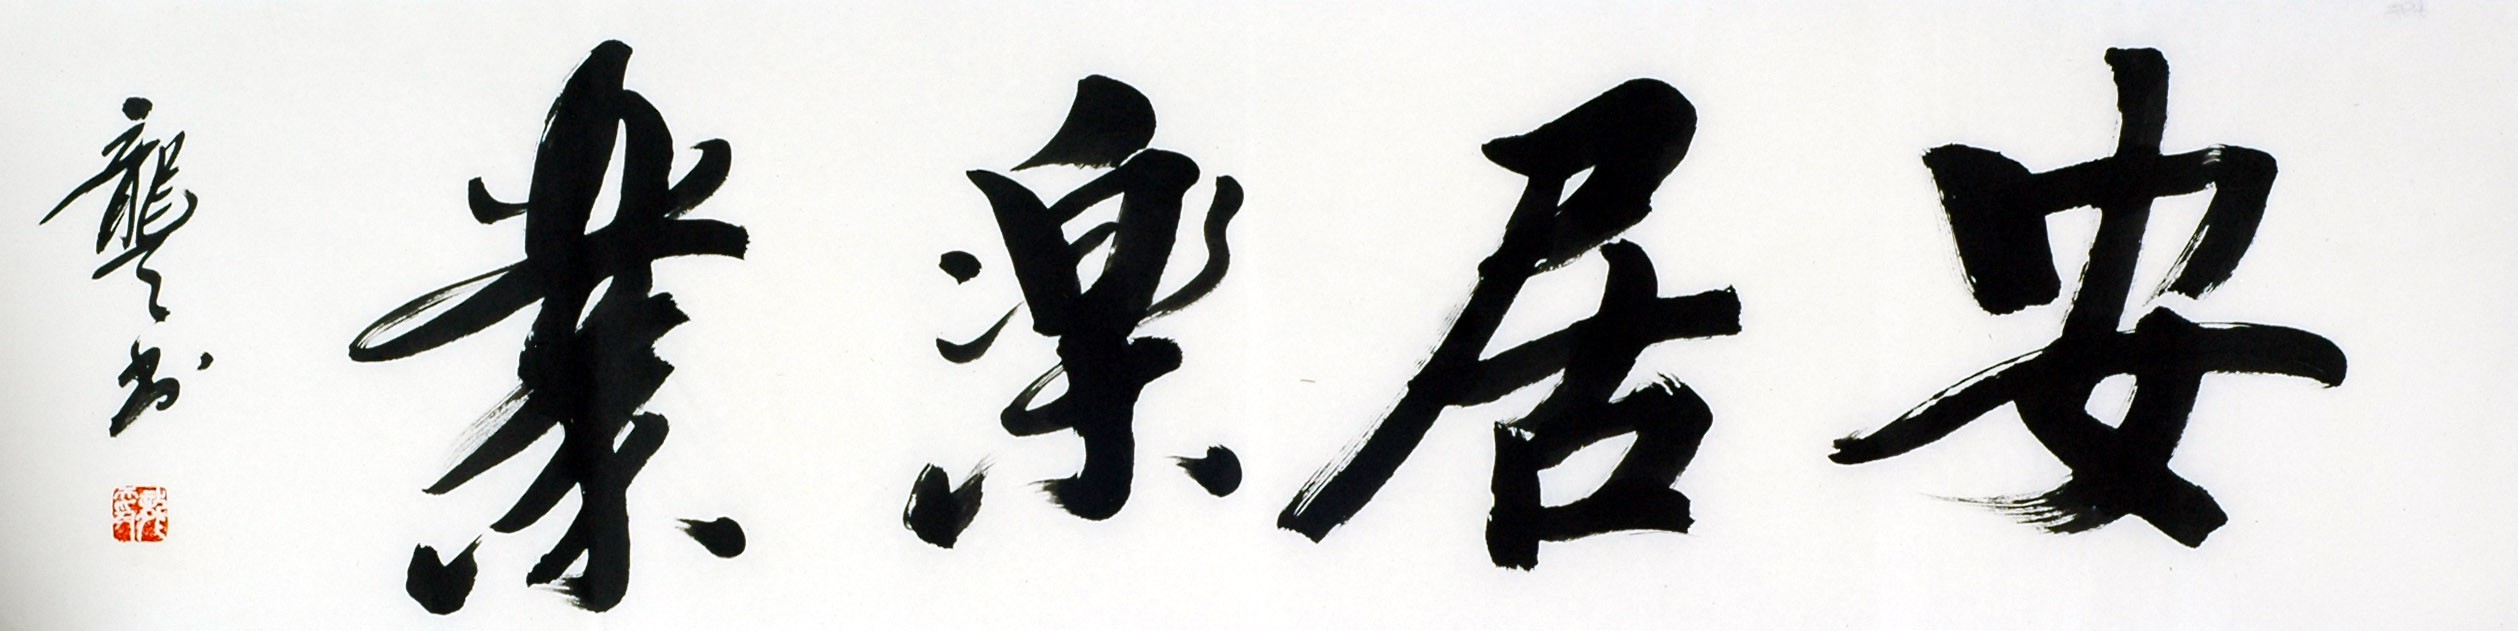 安居樂業
龔書